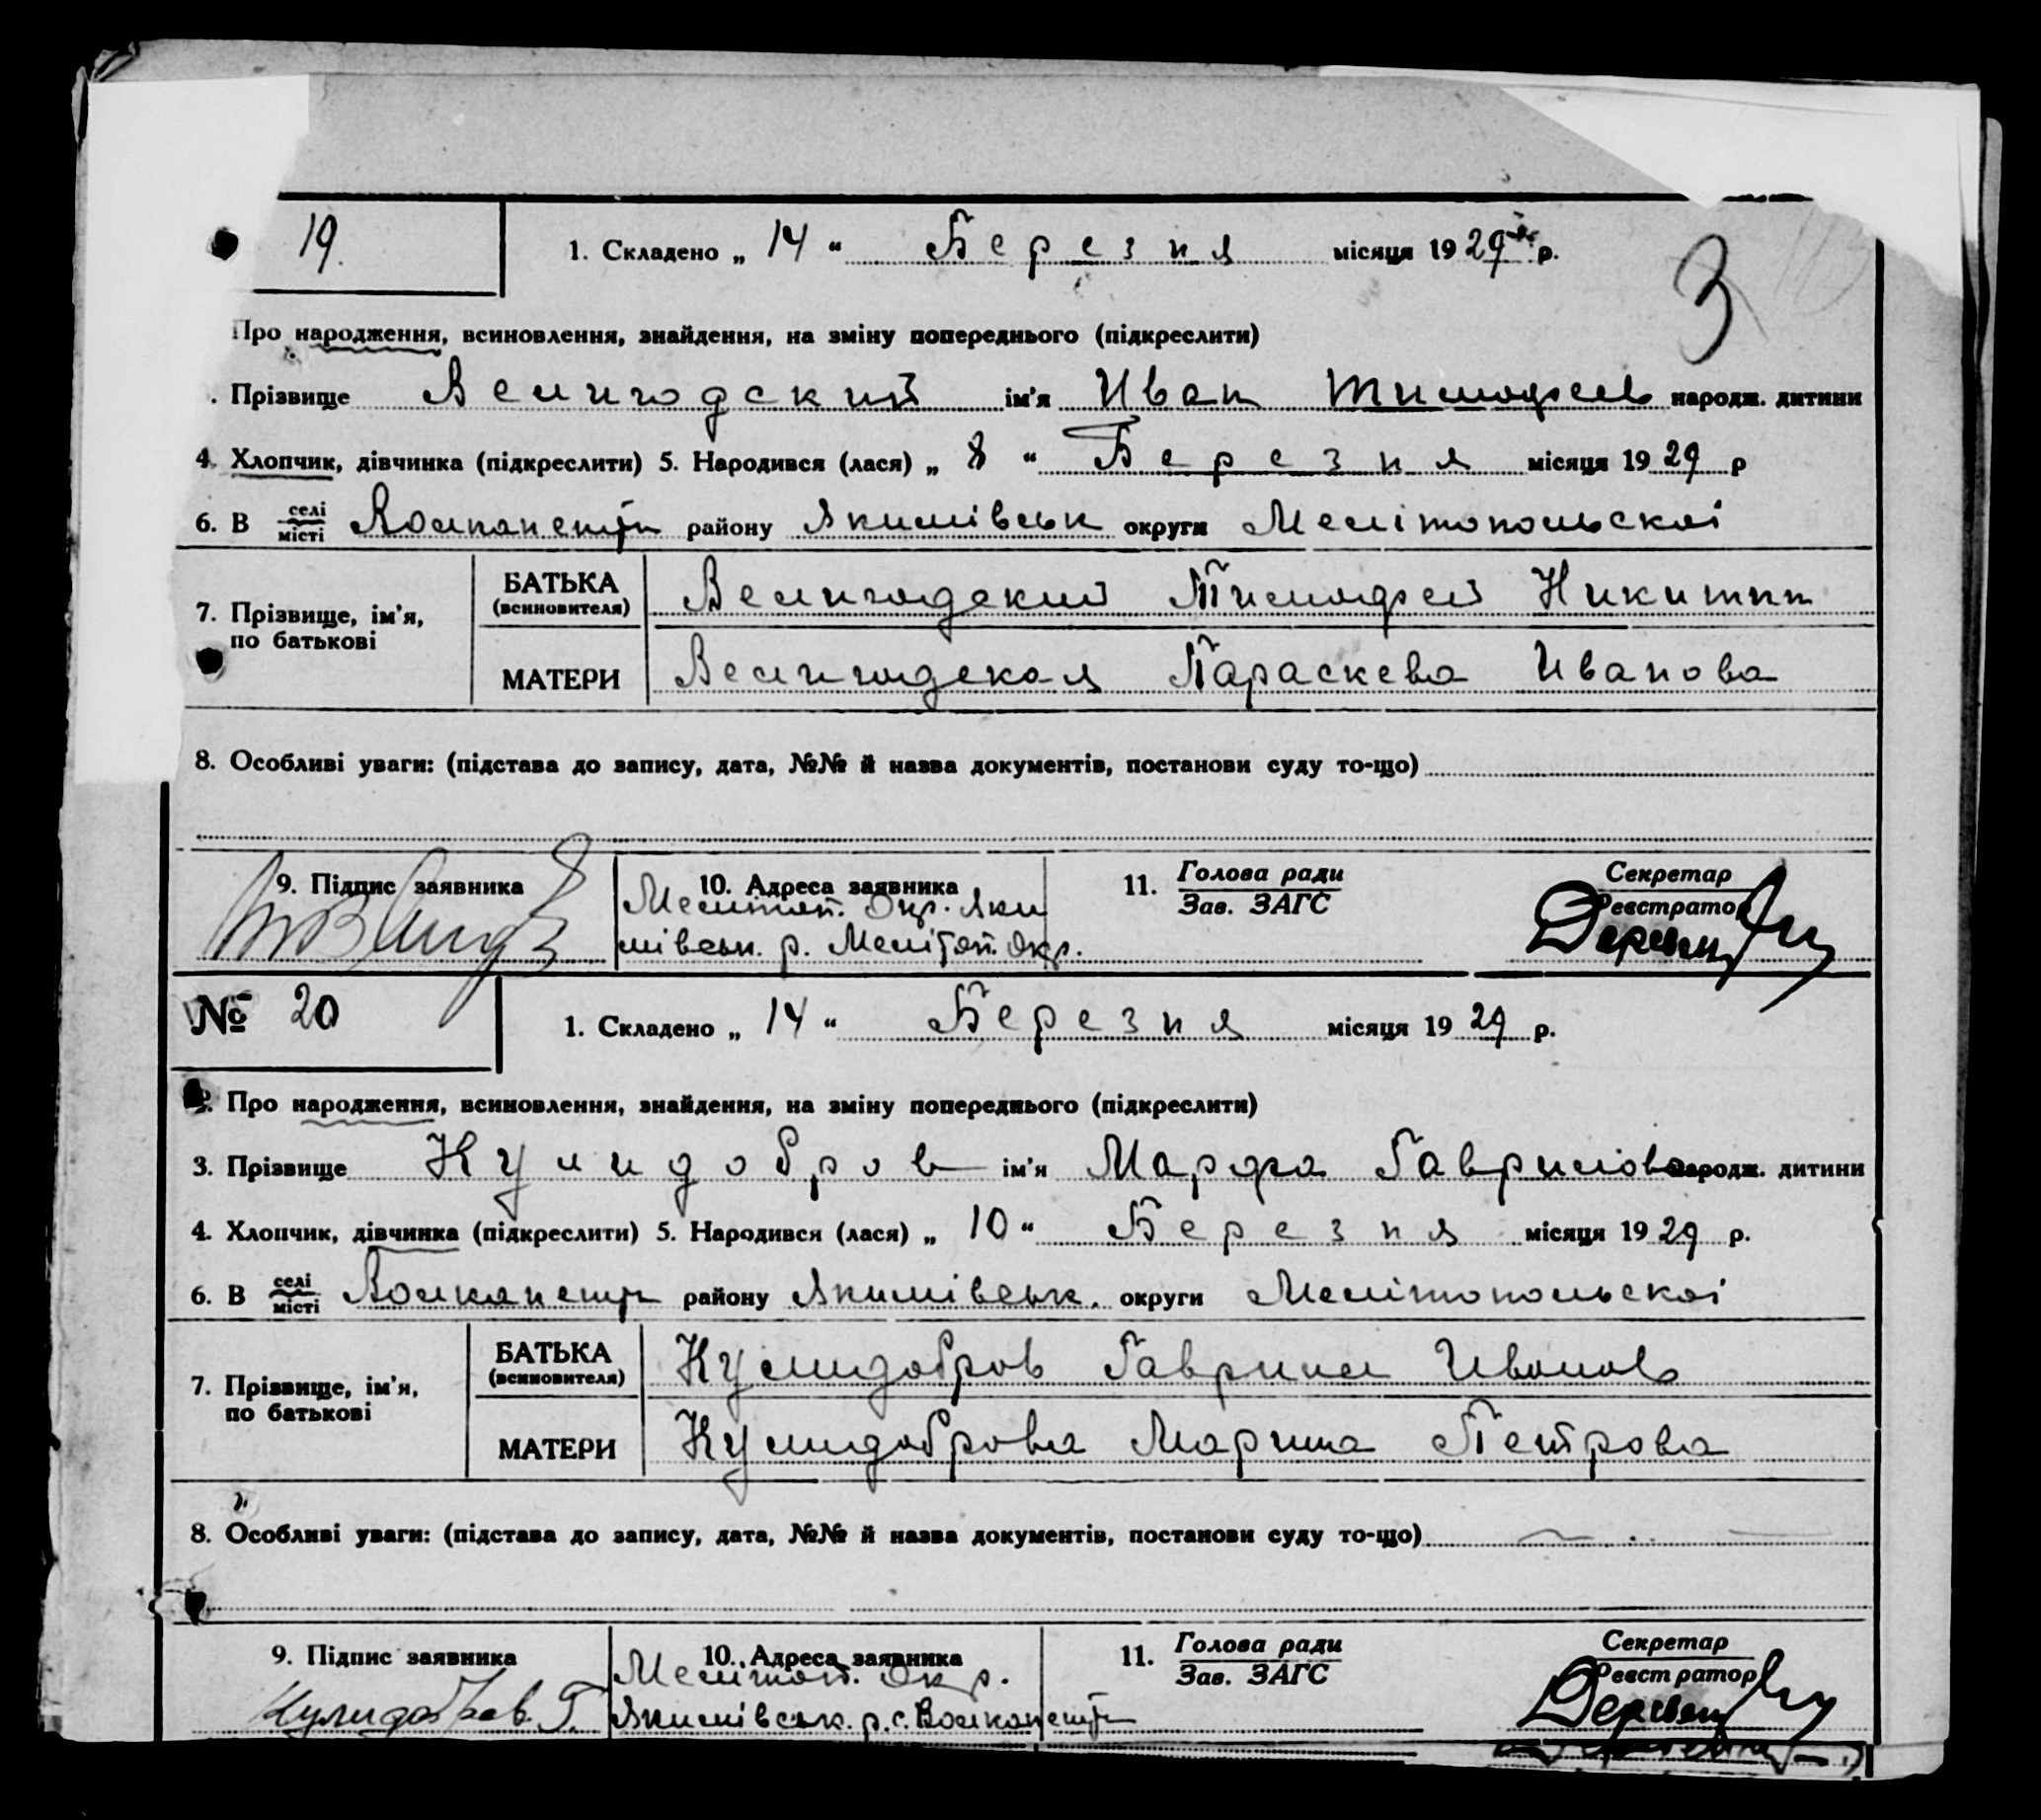 19.
1. Складено „ 14 “ Березня місяця 19 29 р.
3
Про народження, всиновлення, знайдення, на зміну попереднього (підкреслити)
. Прізвище Велигодский ім'я Иван Тимофеев народж. дитини
4. Хлопчик, дівчинка (підкреслити) 5. Народився (лася) „ 8 “ Березня місяця 19 29 р
6. В селі місті району Якимівськ округи Мелітопольскоі
7. Прізвище, ім'я, по батькові
БАТЬКА (всиновителя) Велигодский Тимофей Никитин
МАТЕРИ Велигодская Параскева Иванова
8. Особливі уваги: (підстава до запису, дата, №№ й назва документів, постанови суду то-що)
9. Підпис заявника
10. Адреса заявника
Мелитоп. Окр. Яки
мівськ. р. Меліто­п. окр.
11. Голова ради Зав. ЗАГС
Секретар Реєстратор
№ 20
1. Складено „ 14 “ Березня місяця 19 29 р.
2. Про народження, всиновлення, знайдення, на зміну попереднього (підкреслити)
3. Прізвище Кулидобров ім'я Марфа Гаврилова народж. дитини
4. Хлопчик, дівчинка (підкреслити) 5. Народився (лася) „ 10 “ Березня місяця 19 29 р.
6. В селі місті району Якимівськ. округи Мелітопольскоі
7. Прізвище, ім'я, по батькові
БАТЬКА (всиновителя) Кулидобров Гаврил Иванов
МАТЕРИ Кулидоброва Марина Петрова
8. Особливі уваги: (підстава до запису, дата, №№ й назва документів, постанови суду то-що)
9. Підпис заявника
Кулидобров. Г.
10. Адреса заявника
Мелітоп. Окр.
Якимівськ. р. с.
11. Голова ради Зав. ЗАГС
Секретар Реєстратор